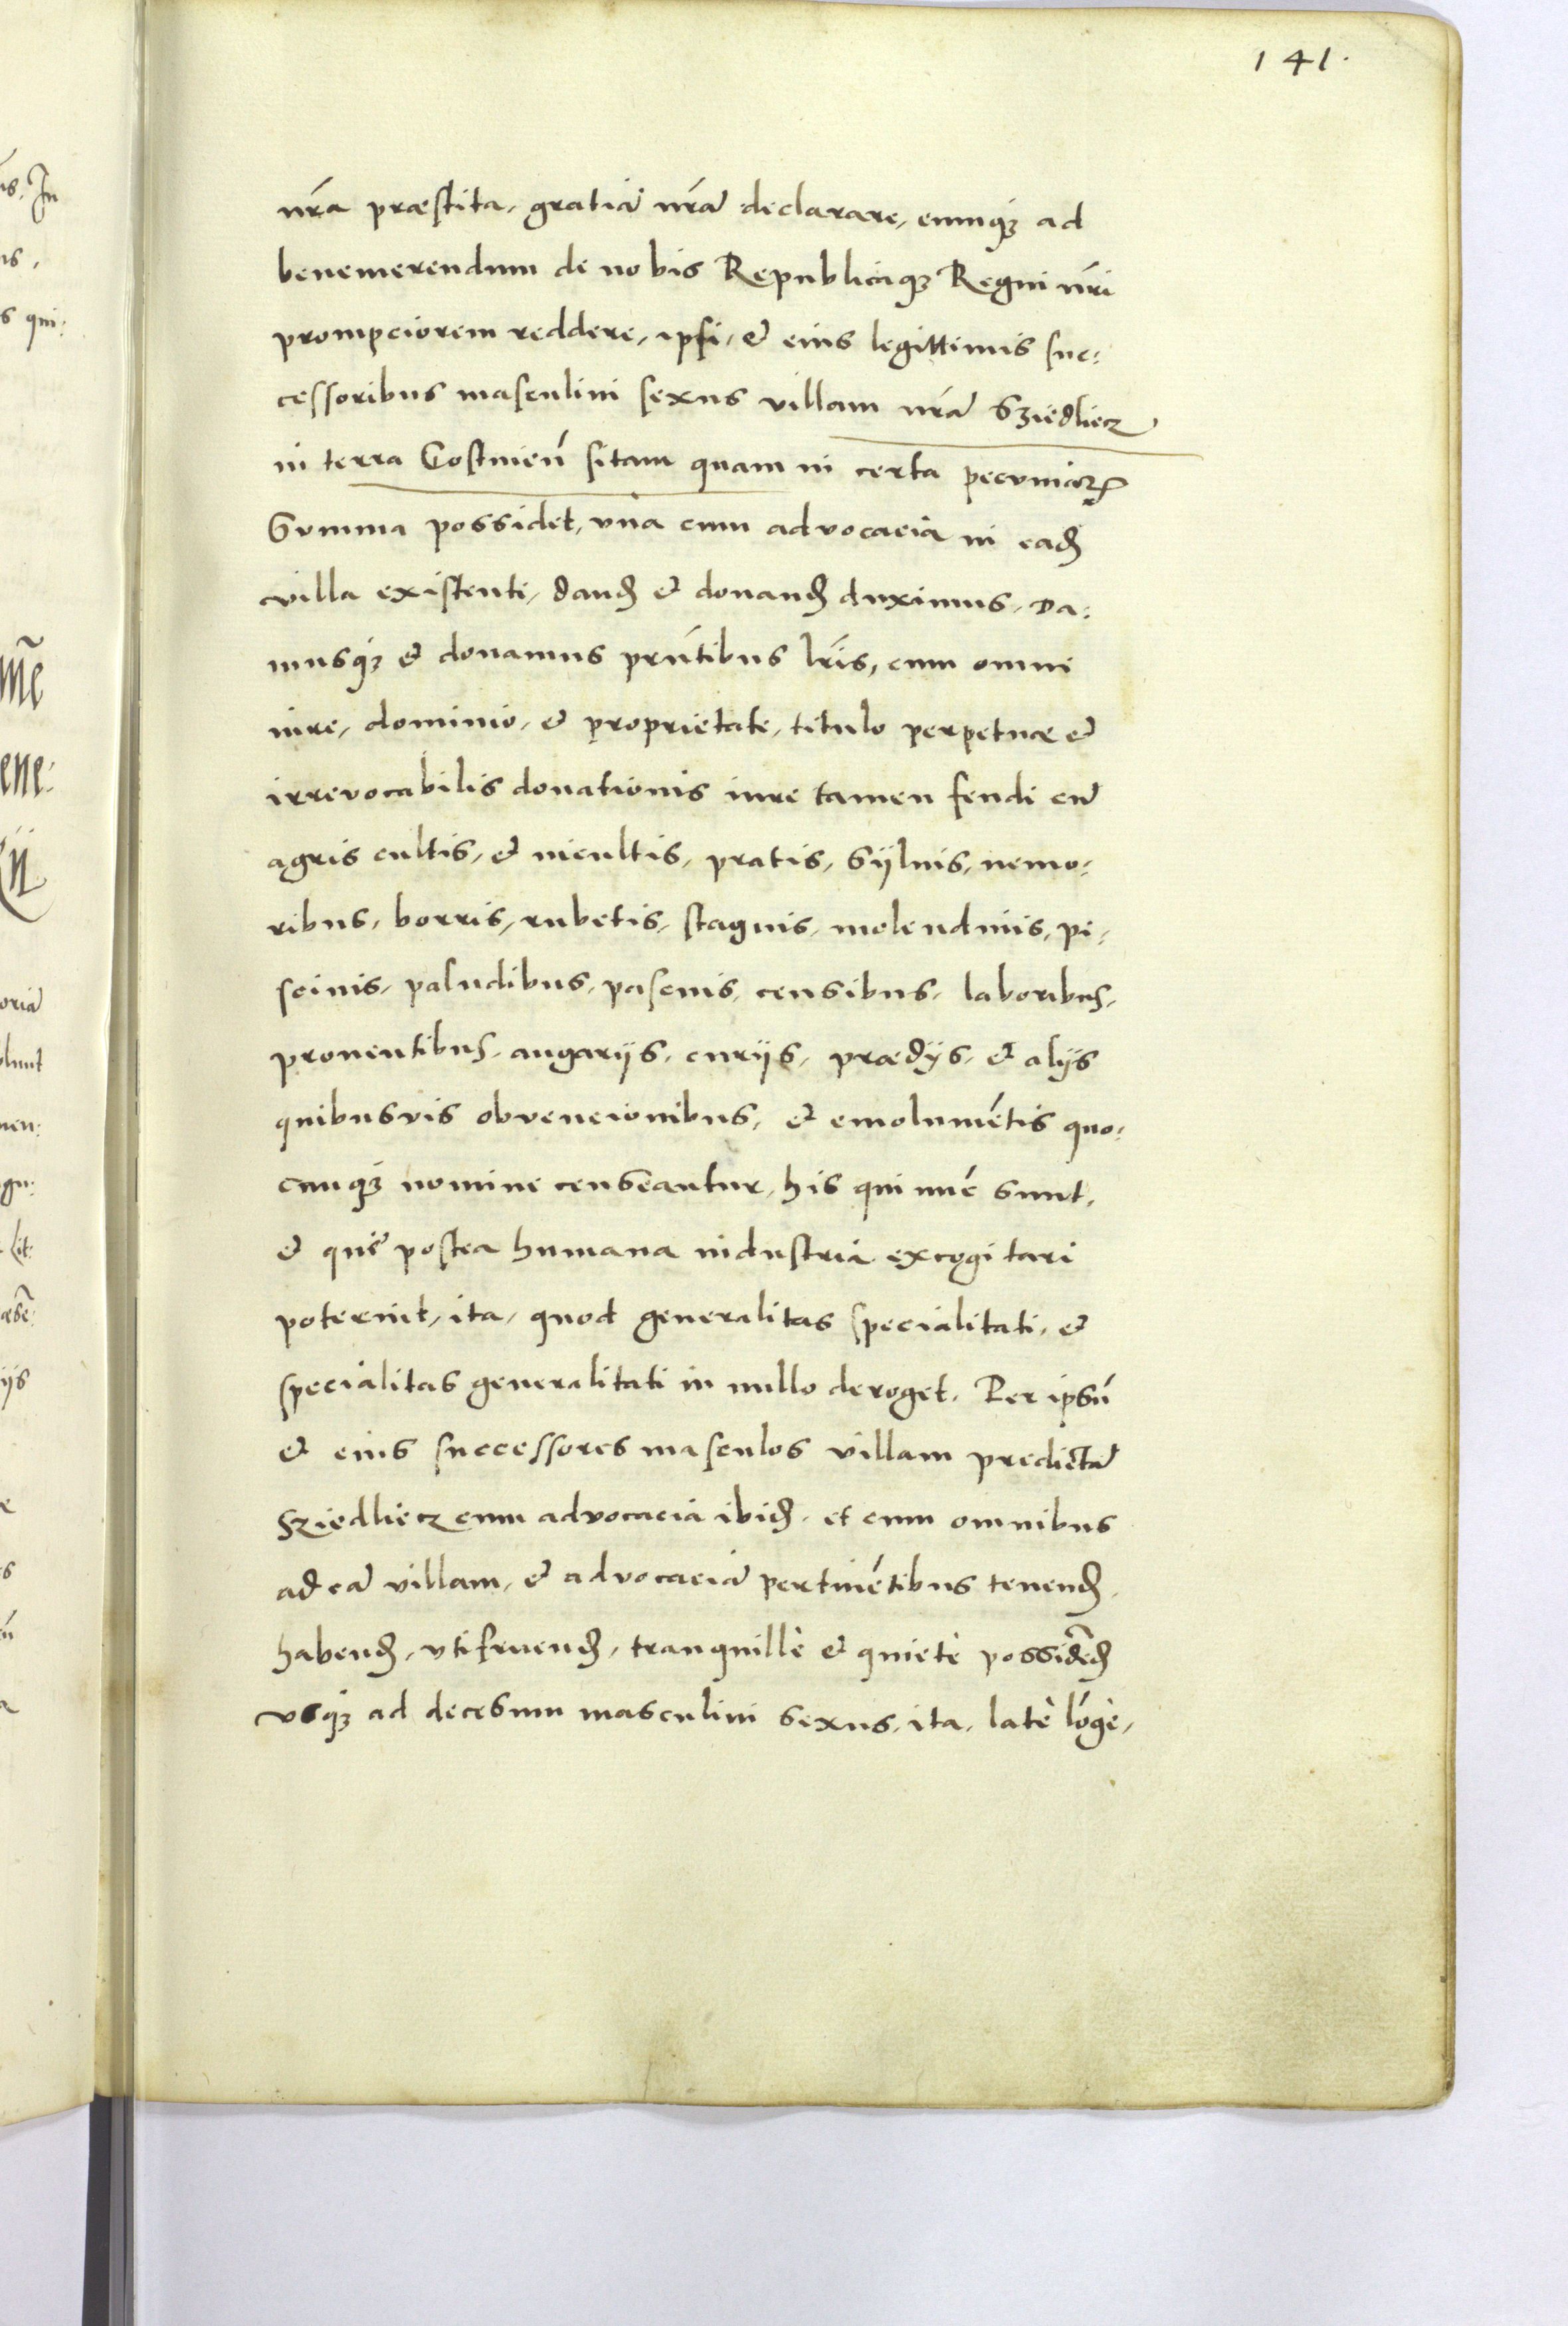 141.
nr̃a præstita, gratiã nr̃ã declarare, eumq́ꝫ ad
benemerendum de nobis Republicaqꝫ Regni nr̃i
prompciorem reddere, ipsi, & eius legittimis suc:
cessoribus masculini sexus villam nr̃ã Sziedliecz
in terra Gostnieñ sitam quam in certa pecuniaꝝ
Summa possidet, vna cum advocacia in eadẽ
villa existenti, dandꝭ & donandꝭ duximus, Da:
musq́ꝫ & donamus pñtibus lr̃is, cum omni
iure, dominio, & proprietate, titulo perpetuæ &
irrevocabilis donationis iure tamen feudi cũ
agris cultis, & incultis, pratis, Sÿluis, nemo:
ribus, borris, rubetis, stagnis, molendinis, pi:
scinis, paludibus, pascuis, censibus, laboribus,
prouentibus, angarijs, curijs, prædÿs, & alÿs
quibusvis obvencionibus, & emolumẽtis quo:
cunq́ꝫ nomine censeantur, his qui nũc sunt,
& quẽ postea humana industria excogitari
poterint, ita, quod generalitas specialitati, &
specialitas generalitati in nullo deroget. Per ipsũ
& eius successores masculos villam predictã
Sziedliecz cum advocacia ibidẽ, et cum omnibus
ad eã villam, & advocaciã pertinẽtibus tenendꝭ,
habendꝭ, vtifruendꝭ, tranquillè & quietè possidẽdꝭ
vsq́ꝫ ad decesum masculini sexus, ita, latè lõgè,